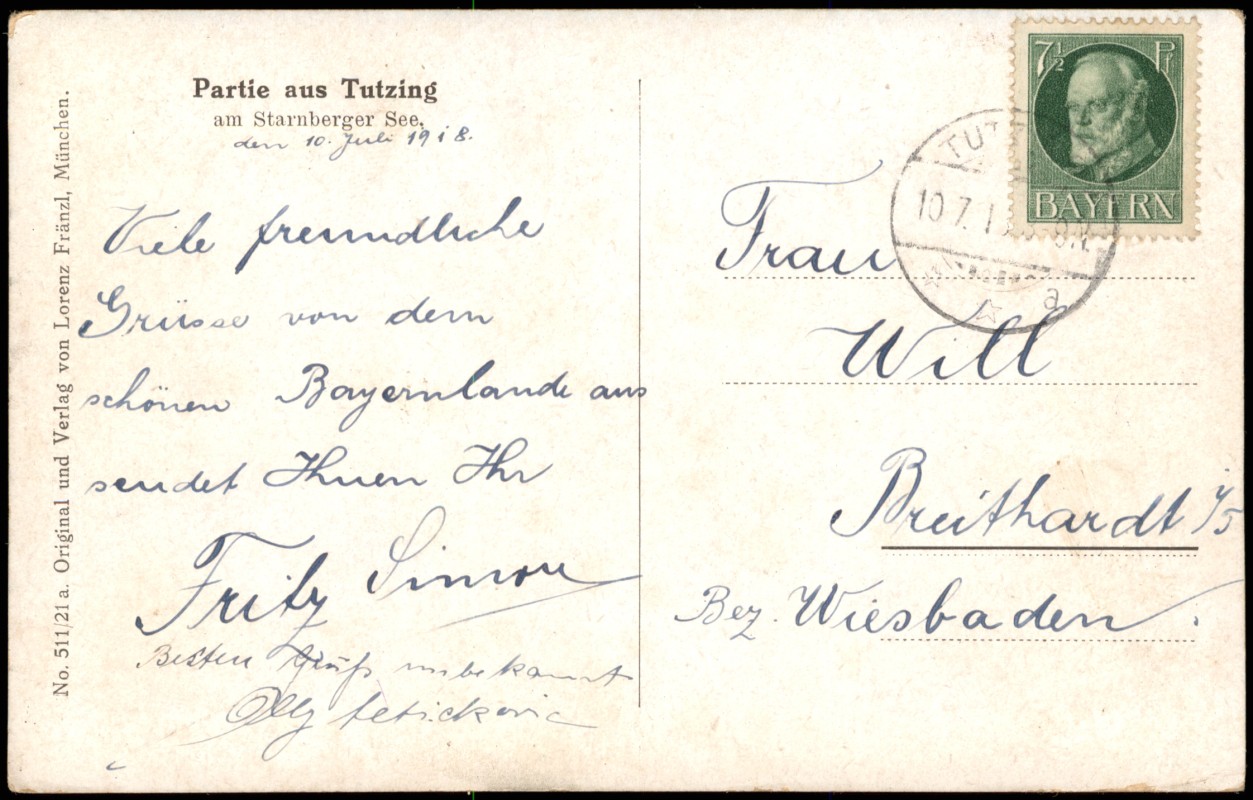 Partie aus Tutzing
am Starnberger See.
den 10. Juli 1918.
Viele freundliche
Grüsse von dem
schönen Bayernlande aus
sendet Ihnen Ihr
Fritz Simon
Besten Gruß unbekannt
Olly
No. 511/21 a. Original und Verlag von Lorenz Fränzl, München.
7½ Pf
BAYERN
TUT
10.7.1
a
Frau
Will
Breithardt
Bez. Wiesbaden.